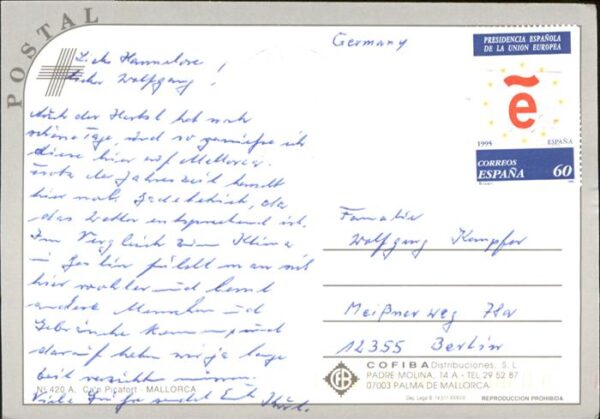 POSTAL
Germany
PRESIDENCIA ESPAÑOLA
DE LA UNION EUROPEA
ẽ
1995 ESPAÑA
CORREOS
ESPAÑA 60
Liebe Hannelore!
Lieber Wolfgang!
Auch der Herbst hat noch
schöne Tage, und so genieße ich
diese hier auf Mallorca.
Trotz der Jahreszeit herrscht
hier noch Badebetrieb, da
das Wetter entsprechend ist.
Im Vergleich zum Klima
in Berlin fühlt man sich
hier wohler und lernt
andere Menschen und
Gebräuche kennen und
darauf haben wir ja lange
Zeit verzichten müssen.
Viele Grüße sendet Euch
Familie
Wolfgang Kempfer
Meißner Weg 78a
12355 Berlin
COFIBA Distribuciones, S.L.
PADRE MOLINA, 14 A - TEL 29 52 87
07003 PALMA DE MALLORCA
N.º 420 A. Ca'n Picafort - MALLORCA
REPRODUCCION PROHIBIDA